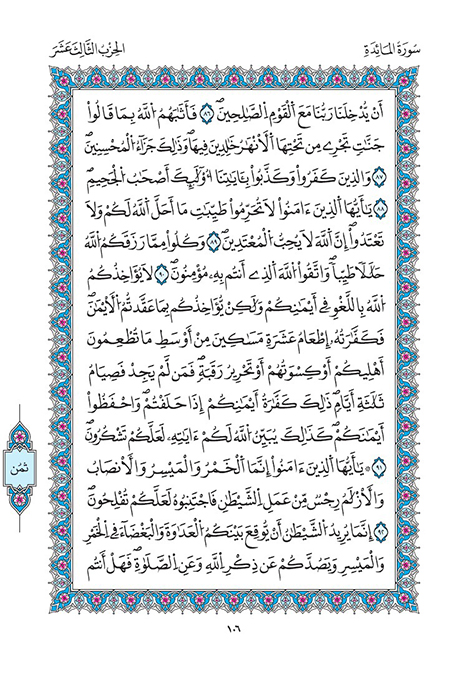 سُورَةُ المَائِدَةِ
الحِزْبُ الثَّالِثَ عَشَرَ
أَنْ يُّدْخِلَنَا رَبُّنَا مَعَ اَ۬لْقَوْمِ اِ۬لصَّٰلِحِينَۖ ٨٦ فَأَثَٰبَهُمُ اُ۬للَّهُ بِمَا قَالُواْ
جَنَّٰتٖ تَجْرِے مِن تَحْتِهَا اَ۬لْأَنْهَٰرُ خَٰلِدِينَ فِيهَاۖ وَذَٰلِكَ جَزَآءُ اُ۬لْمُحْسِنِينَۖ
٨٧ وَالذِينَ كَفَرُواْ وَكَذَّبُواْ بِـَٔايَٰتِنَآ أُوْلَٰٓئِكَ أَصْحَٰبُ اُ۬لْجَحِيمِۖ
٨٨ يَٰٓأَيُّهَا اَ۬لذِينَ ءَامَنُواْ لَا تُحَرِّمُواْ طَيِّبَٰتِ مَآ أَحَلَّ اَ۬للَّهُ لَكُمْ وَلَا
تَعْتَدُوٓاْۖ إِنَّ اَ۬للَّهَ لَا يُحِبُّ اُ۬لْمُعْتَدِينَۖ ٨٩ وَكُلُواْ مِمَّا رَزَقَكُمُ اُ۬للَّهُ
حَلَٰلاٗ طَيِّباٗۖ وَاتَّقُواْ اُ۬للَّهَ اَ۬لذِےٓ أَنتُم بِهِۦ مُؤْمِنُونَۖ ٩٠ لَا يُؤَاخِذُكُمُ
اُ۬للَّهُ بِاللَّغْوِ فِےٓ أَيْمَٰنِكُمْ وَلَٰكِنْ يُّؤَاخِذُكُم بِمَا عَقَّدتُّمُ اُ۬لْأَيْمَٰنَۖ
فَكَفَّٰرَتُهُۥٓ إِطْعَامُ عَشَرَةِ مَسَٰكِينَ مِنْ أَوْسَطِ مَا تُطْعِمُونَ
أَهْلِيكُمُۥٓ أَوْ كِسْوَتُهُمُۥٓ أَوْ تَحْرِيرُ رَقَبَةٖۖ فَمَن لَّمْ يَجِدْ فَصِيَامُ
ثَلَٰثَةِ أَيَّامٖۖ ذَٰلِكَ كَفَّٰرَةُ أَيْمَٰنِكُمُۥٓ إِذَا حَلَفْتُمْۖ وَاحْفَظُوٓاْ
أَيْمَٰنَكُمْۖ كَذَٰلِكَ يُبَيِّنُ اُ۬للَّهُ لَكُمُۥٓ ءَايَٰتِهِۦ لَعَلَّكُمْ تَشْكُرُونَۖ
٩١ يَٰٓأَيُّهَا اَ۬لذِينَ ءَامَنُوٓاْ إِنَّمَا اَ۬لْخَمْرُ وَالْمَيْسِرُ وَالْأَنصَابُ
وَالْأَزْلَٰمُ رِجْسٞ مِّنْ عَمَلِ اِ۬لشَّيْطَٰنِ فَاجْتَنِبُوهُ لَعَلَّكُمْ تُفْلِحُونَۖ
٩٢ إِنَّمَا يُرِيدُ اُ۬لشَّيْطَٰنُ أَنْ يُّوقِعَ بَيْنَكُمُ اُ۬لْعَدَٰوَةَ وَالْبَغْضَآءَ فِے اِ۬لْخَمْرِ
وَالْمَيْسِرِ وَيَصُدَّكُمْ عَن ذِكْرِ اِ۬للَّهِ وَعَنِ اِ۬لصَّلَوٰةِۖ فَهَلَ اَنتُم
ثُمُن
١٠٦